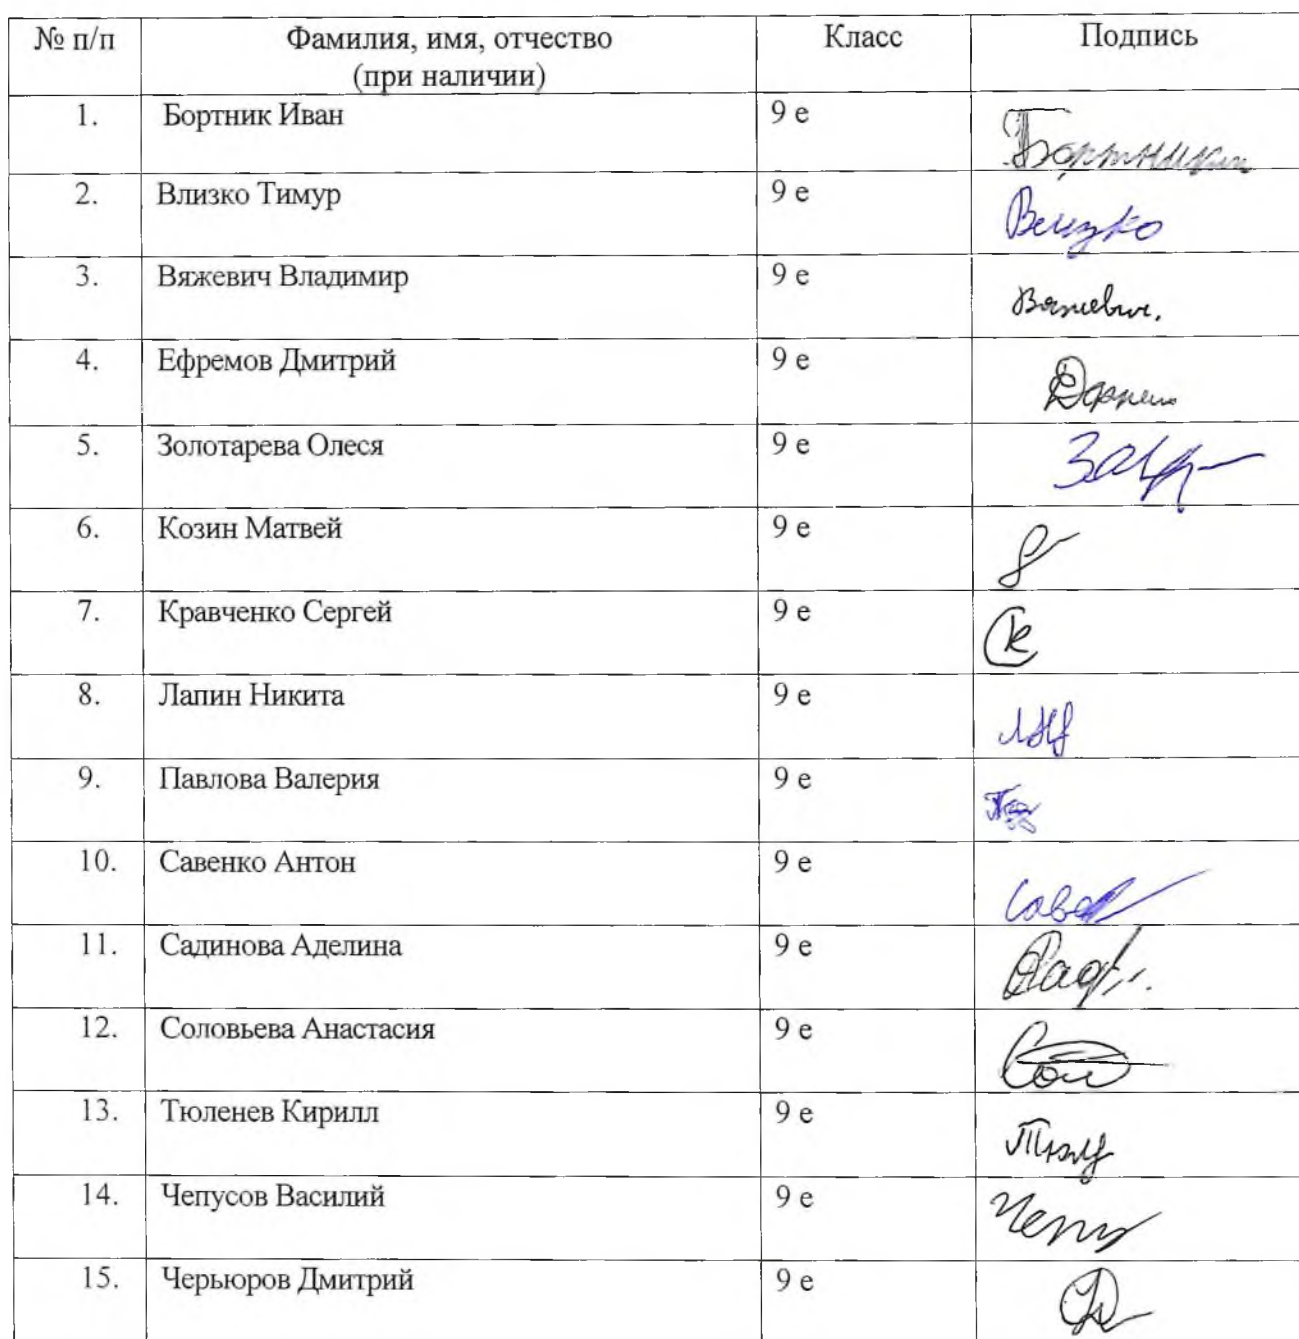 № п/п Фамилия, имя, отчество Класс Подпись
(при наличии)
1. Бортник Иван 9 е
2. Влизко Тимур 9 е Влизко
3. Вяжевич Владимир 9 е Вяжевич.
4. Ефремов Дмитрий 9 е
5. Золотарева Олеся 9 е
6. Козин Матвей 9 е
7. Кравченко Сергей 9 е
8. Лапин Никита 9 е
9. Павлова Валерия 9 е
10. Савенко Антон 9 е
11. Садинова Аделина 9 е
12. Соловьева Анастасия 9 е
13. Тюленев Кирилл 9 е
14. Чепусов Василий 9 е
15. Черьюров Дмитрий 9 е